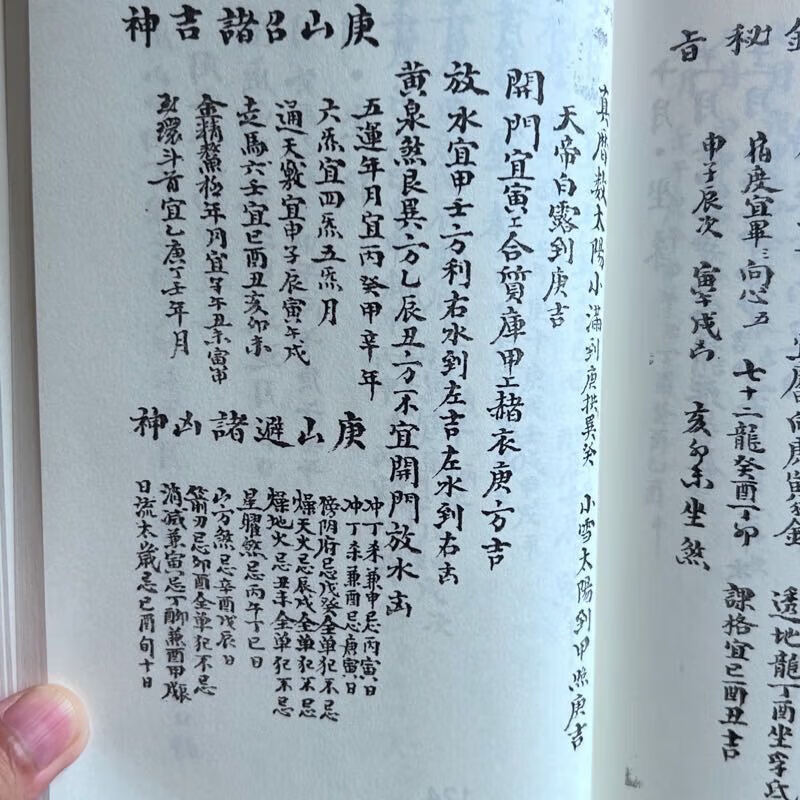 秘旨
宿度宜畢三向心五 七十二龍癸酉丁卯
申子辰次 寅午戌凶 亥卯未坐煞
透地龍丁酉坐
課格宜巳酉丑吉
真曆数太陽小滿到庚拱巽癸 小雪太陽到甲照庚吉
天帝白露到庚吉
開門宜寅工合質庫甲工赭衣庚方吉
放水宜甲壬方利右水到左吉左水到右凶
黄泉煞艮巽方乙辰丑方不宜開門放水凶
庚山召諸吉神
五運年月宜丙癸甲辛年
六炁宜四炁五炁月
通天竅宜申子辰寅午戌
走馬六壬宜巳酉丑亥卯未
金精鰲極年月宜子午丑未寅申
環斗首宜乙庚丁壬年月
庚山避諸凶神
冲丁未兼申忌丙寅日
冲丁未兼酉忌庚寅日
傍阴府忌戊癸全单犯不忌
燥天火忌辰戌全单犯不忌
燥地火忌丑未全单犯不忌
星曜煞忌丙午丁巳日
山方煞忌辛酉戊辰日
箭刃忌卯酉全单犯不忌
消减兼寅忌丁卯兼酉甲戌辰
日流太歲忌己酉旬十日